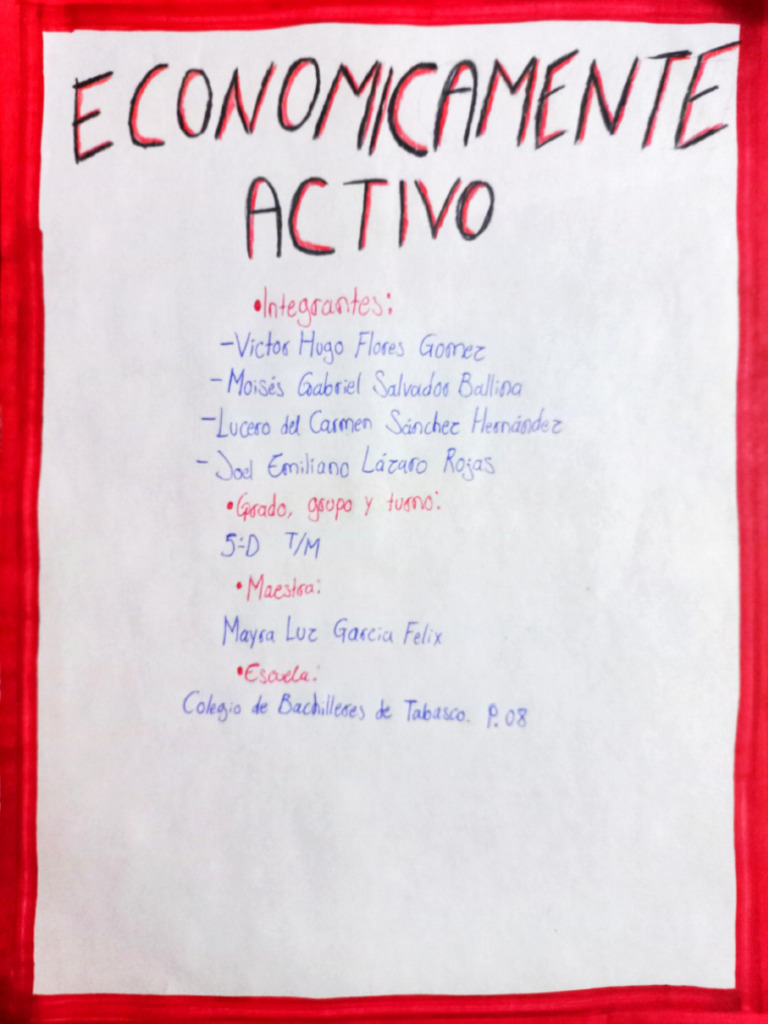 ECONOMICAMENTE
ACTIVO
•Integrantes:
-Victor Hugo Flores Gomez
-Moisés Gabriel Salvador Ballina
-Lucero del Carmen Sánchez Hernández
-Joel Emiliano Lázaro Rojas
•Grado, grupo y turno:
5-D T/M
•Maestra:
Mayra Luz Garcia Felix
•Escuela:
Colegio de Bachilleres de Tabasco. P. 08